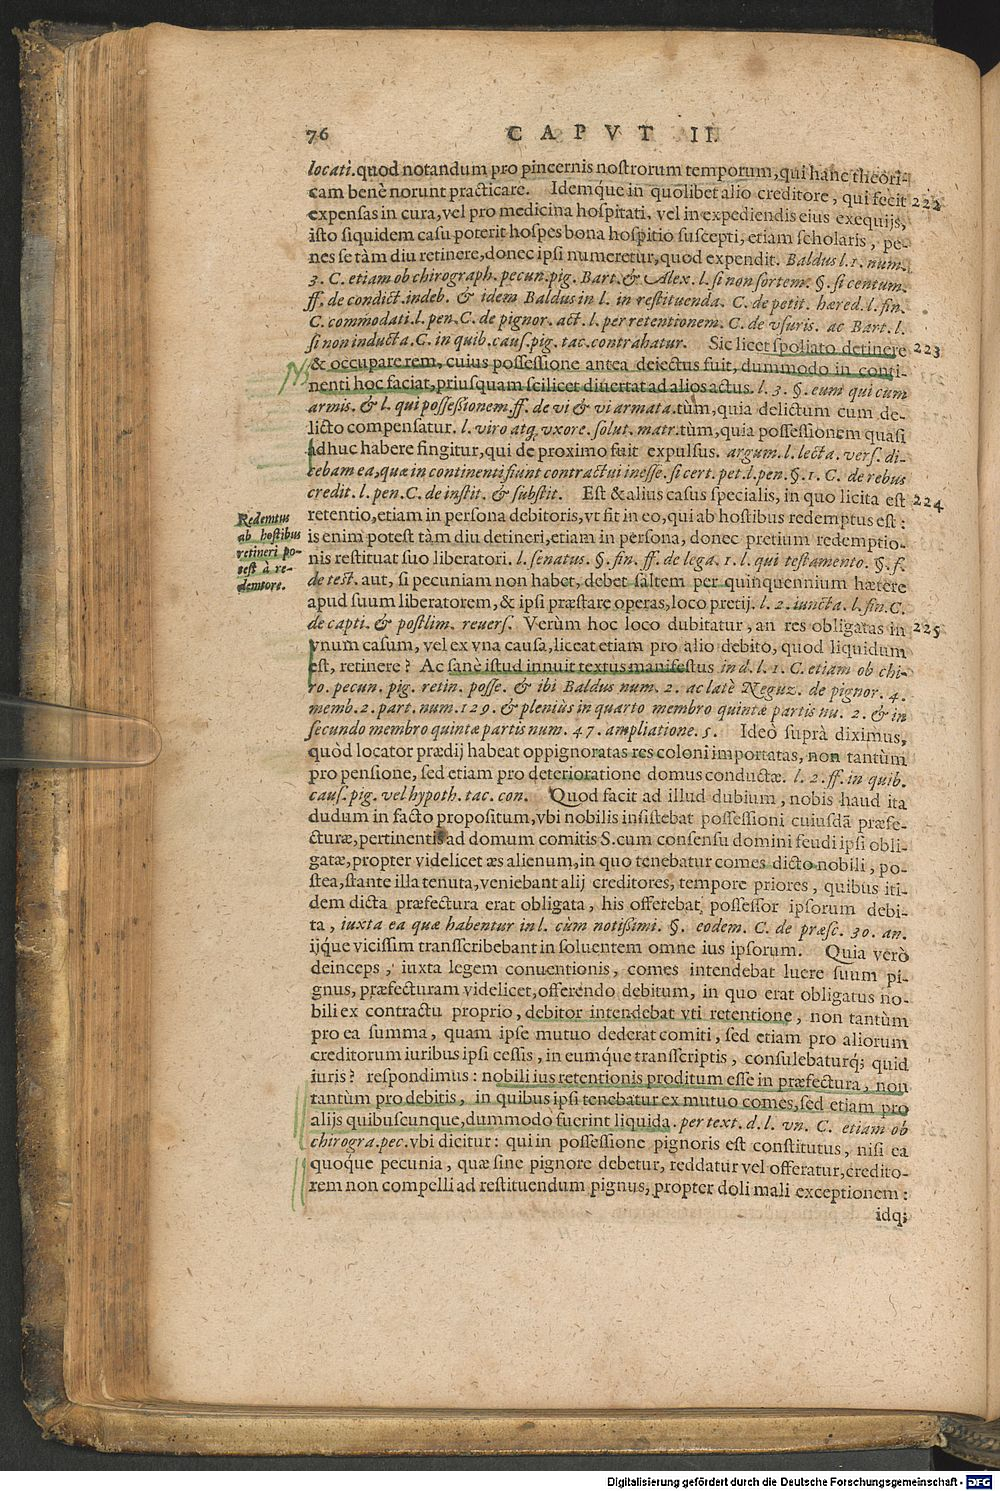 76 CAPVT II.
locati. quod notandum pro pincernis nostrorum temporum, qui hanc theori-
cam benè norunt practicare. Idemque in quolibet alio creditore, qui fecit 222
expensas in cura, vel pro medicina hospitati, vel in expediendis eius exequijs,
isto siquidem casu poterit hospes bona hospitio suscepti, etiam scholaris, pe-
nes se tàm diu retinere, donec ipsi numeretur, quod expendit. Baldus l. 1. num.
3. C. etiam ob chirograph. pecun. pig. Bart. & Alex. l. si non sortem. §. si centum.
ff. de condict. indeb. & idem Baldus in l. in restituenda. C. de petit. hæred. l. fin.
C. commodati. l. pen. C. de pignor. act. l. per retentionem. C. de vsuris. ac Bart. l.
si non inducta. C. in quib. caus. pig. tac. contrahatur. Sic licet spoliato detinere 223
& occupare rem, cuius possessione antea deiectus fuit, dummodo in conti-
nenti hoc faciat, priusquam scilicet diuertat ad alios actus. l. 3. §. eum qui cum
armis. & l. qui possessionem. ff. de vi & vi armata. tùm, quia delictum cum de-
licto compensatur. l. viro atq; vxore. solut. matr. tùm, quia possessionem quasi
adhuc habere fingitur, qui de proximo fuit expulsus. argum. l. lecta. vers. di-
cebam ea, quæ in continenti fiunt contractui inesse. si cert. pet. l. pen. §. 1. C. de rebus
credit. l. pen. C. de instit. & substit. Est & alius casus specialis, in quo licita est 224
retentio, etiam in persona debitoris, vt fit in eo, qui ab hostibus redemptus est:
Redemtus
ab hostibus
retineri po-
test à re-
demtore.
is enim potest tàm diu detineri, etiam in persona, donec pretium redemptio-
nis restituat suo liberatori. l. senatus. §. fin. ff. de lega. 1. l. qui testamento. §. f.
de test. aut, si pecuniam non habet, debet saltem per quinquennium hærere
apud suum liberatorem, & ipsi præstare operas, loco pretij. l. 2. iuncta. l. fin. C.
de capti. & postlim. reuers. Verùm hoc loco dubitatur, an res obligatas in 225
vnum casum, vel ex vna causa, liceat etiam pro alio debito, quod liquidum
est, retinere? Ac sanè istud innuit textus manifestus in d. l. 1. C. etiam ob chi-
ro. pecun. pig. retin. posse. & ibi Baldus num. 2. ac latè Neguz. de pignor. 4.
memb. 2. part. num. 129. & pleniùs in quarto membro quintæ partis nu. 2. & in
secundo membro quintæ partis num. 47. ampliatione. 5. Ideò suprà diximus,
quòd locator prædij habeat oppignoratas res coloni importatas, non tantùm
pro pensione, sed etiam pro deterioratione domus conductæ. l. 2. ff. in quib.
caus. pig. vel hypoth. tac. con. Quod facit ad illud dubium, nobis haud ita
dudum in facto propositum, vbi nobilis insistebat possessioni cuiusdā præfe-
cturæ, pertinentis ad domum comitis S. cum consensu domini feudi ipsi obli-
gatæ, propter videlicet æs alienum, in quo tenebatur comes dicto nobili, po-
stea, stante illa tenuta, veniebant alij creditores, tempore priores, quibus iti-
dem dicta præfectura erat obligata, his offerebat possessor ipsorum debi-
ta, iuxta ea quæ habentur in l. cùm notissimi. §. eodem. C. de præsc. 30. an.
ijque vicissim transscribebant in soluentem omne ius ipsorum. Quia verò
deinceps, iuxta legem conuentionis, comes intendebat luere suum pi-
gnus, præfecturam videlicet, offerendo debitum, in quo erat obligatus no-
bili ex contractu proprio, debitor intendebat vti retentione, non tantùm
pro ea summa, quam ipse mutuo dederat comiti, sed etiam pro aliorum
creditorum iuribus ipsi cessis, in eumque transscriptis, consulebaturq; quid
iuris? respondimus: nobili ius retentionis proditum esse in præfectura, non
tantùm pro debitis, in quibus ipsi tenebatur ex mutuo comes, sed etiam pro
alijs quibuscunque, dummodo fuerint liquida. per text. d. l. vn. C. etiam ob
chirogra. pec. vbi dicitur: qui in possessione pignoris est constitutus, nisi ea
quoque pecunia, quæ sine pignore debetur, reddatur vel offeratur, credito-
rem non compelli ad restituendum pignus, propter doli mali exceptionem:
idq;
Digitalisierung gefördert durch die Deutsche Forschungsgemeinschaft - DFG